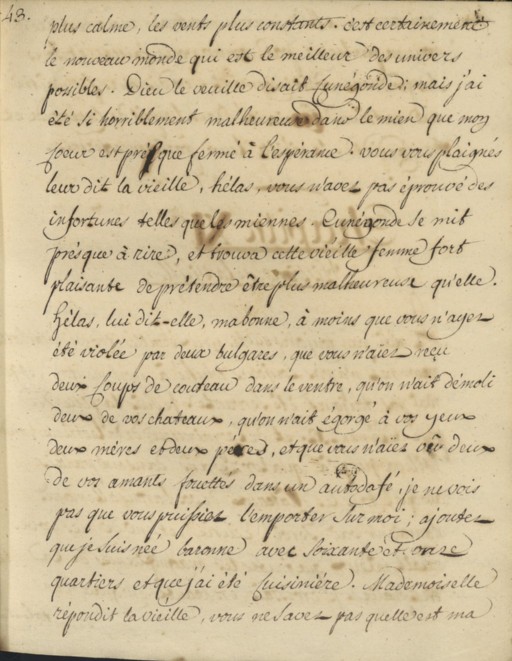 43.
plus calme, les vents plus constants. c'est certainement
le nouveau monde qui est le meilleur des univers
possibles. Dieu le veuille disait Cunégonde; mais j'ai
été si horriblement malheureuse dans le mien que mon
Coeur est presque fermé à l'espérance. vous vous plaignés
leur dit la vieille, hélas, vous n'avez pas éprouvé des
infortunes telles que les miennes. Cunegonde se mit
présque à rire, et trouva cette vieille femme fort
plaisante de prétendre être plus malheureuse qu'elle.
hélas, lui dit-elle, ma bonne, à moins que vous n'ayez
été violée par deux bulgares, que vous n'aiez reçu
deux Coups de couteau dans le ventre, qu'on n'ait démoli
deux de vos chateaux, qu'on n'ait égorgé à vos yeux
deux méres et deux péres, et que vous n'aïez vû deux
de vos amants fouettés dans un autodafé, je ne vois
pas que vous puissiez l'emporter sur moi; ajoutez
que je suis née baronne avec soixante et onze
quartiers et que j'ai été Cuisiniére. Mademoiselle
répondit la vieille, vous ne savez pas quelle est ma